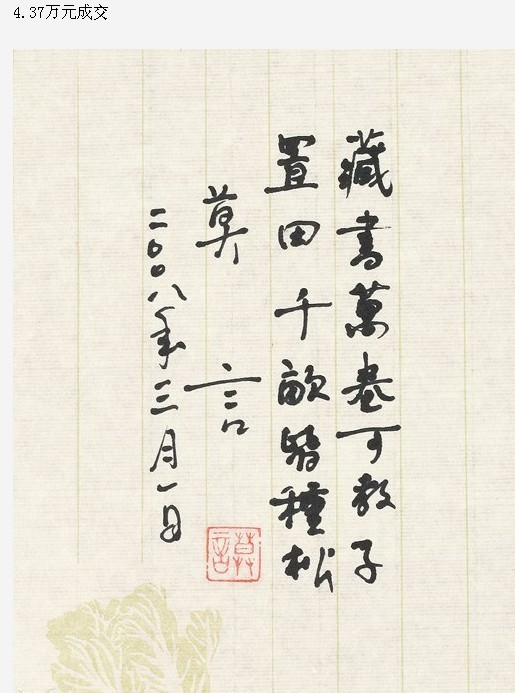 4.37万元成交
藏書萬卷可教子
置田千畝皆種松
莫言
二〇〇八年三月一日
莫言